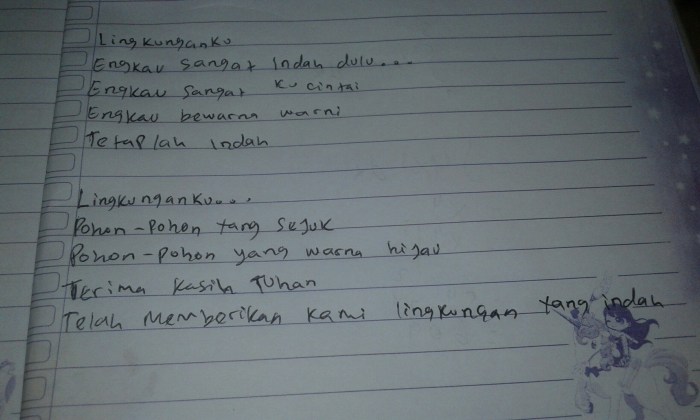 Lingkunganku
Engkau sangat Indah dulu...
Engkau sangat ku cintai
Engkau bewarna warni
Tetaplah indah
Lingkunganku...
Pohon-pohon yang sejuk
Pohon-pohon yang warna hijau
Terima kasih Tuhan
Telah memberikan kami lingkungan yang indah